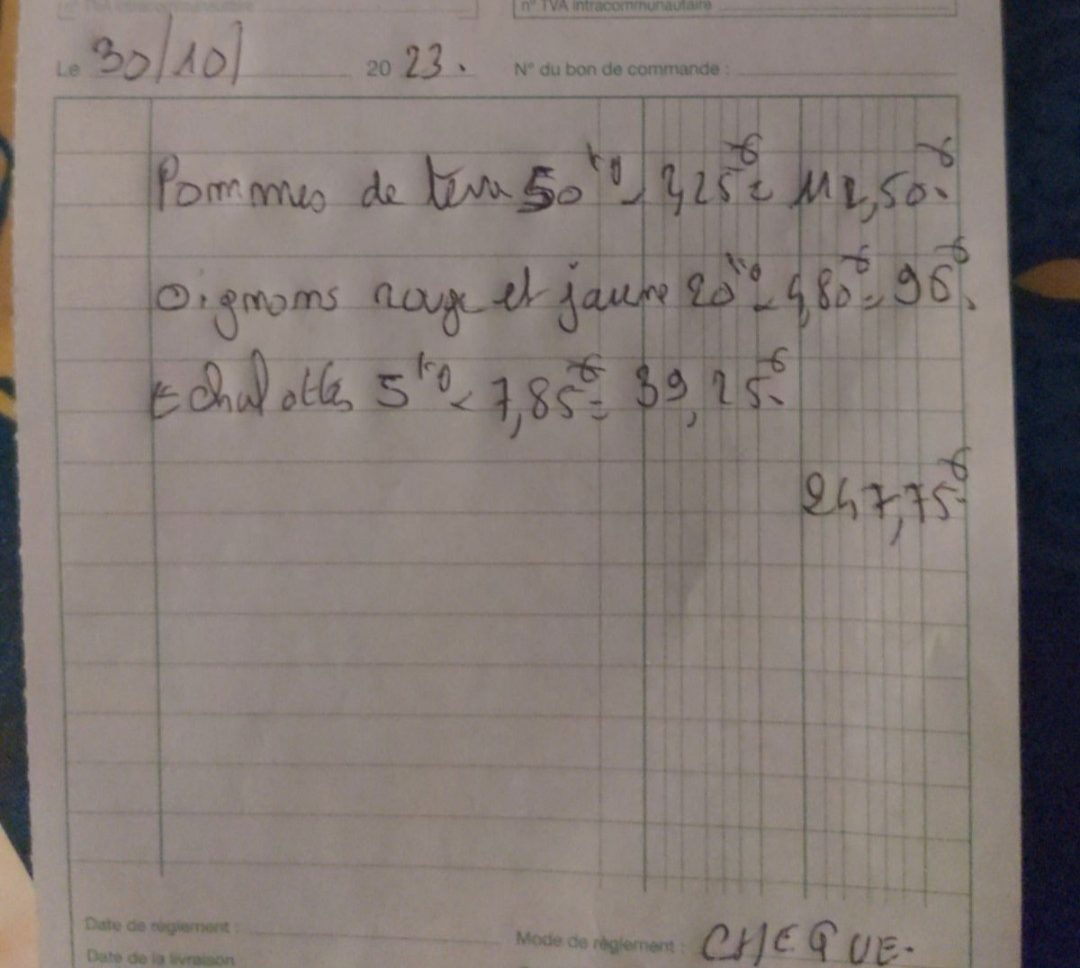 n° TVA intracommunautaire
n° TVA intracommunautaire
Le 30/10/ 2023. N° du bon de commande :
Pommes de terre 50 kg - 2,25€ = 112,50€
Oignons rouge et jaune 20 kg - 4,80€ = 96€.
Echalottes 5 kg - 7,85€ = 39,25€
247,75€
Date de règlement : Mode de règlement : CHEQUE.
Date de la livraison